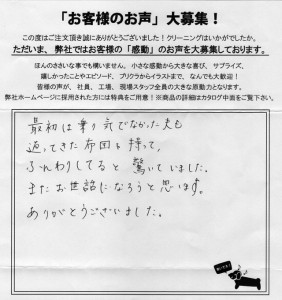 「お客様のお声」大募集！
この度はご注文頂き誠にありがとうございました！クリーニングはいかがでしたか。
ただいま、弊社ではお客様の「感動」のお声を大募集しております。
ほんのささいな事でも構いません。小さな感動から大きな喜び、サプライズ、
嬉しかったことやエピソード、プリクラからイラストまで、なんでも大歓迎！
皆様の声が、社員、工場、現場スタッフ全員の大きな原動力となります。
弊社ホームページに採用された方には特典をご用意！※商品の詳細はカタログ中面をご覧下さい。
最初は乗り気でなかった夫も
返ってきた布団を持って、
ふんわりしてると驚いていました。
またお世話になろうと思います。
ありがとうございました。